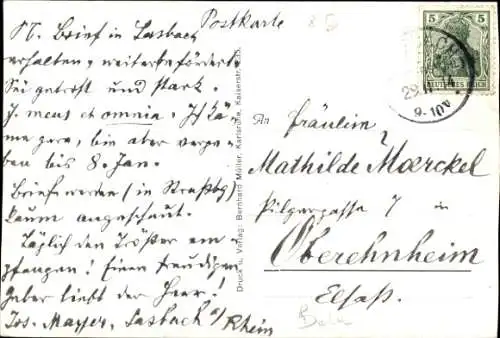 Postkarte
N. Brief in Sasbach
erhalten, weiterbefördert
Sei getrost und stark.
J. meus et omnia. Ich kä
me gern, bin aber verge
ben bis 8. Jan.
Briefe werden (in Straßbg)
kaum angeschaut.
Täglich den Tröster em
pfangen! Einen freudigen
Geber liebt der Herr!
Jos. Mayer, Sasbach a/Rhein
Druck u. Verlag: Bernhard Müller, Karlsruhe, Kaiserstr.
5 5
DEUTSCHES REICH
29.
9-10V
An Fräulein
Mathilde Moerckel
Pilgergasse 7 in
Oberehnheim
Elsaß.